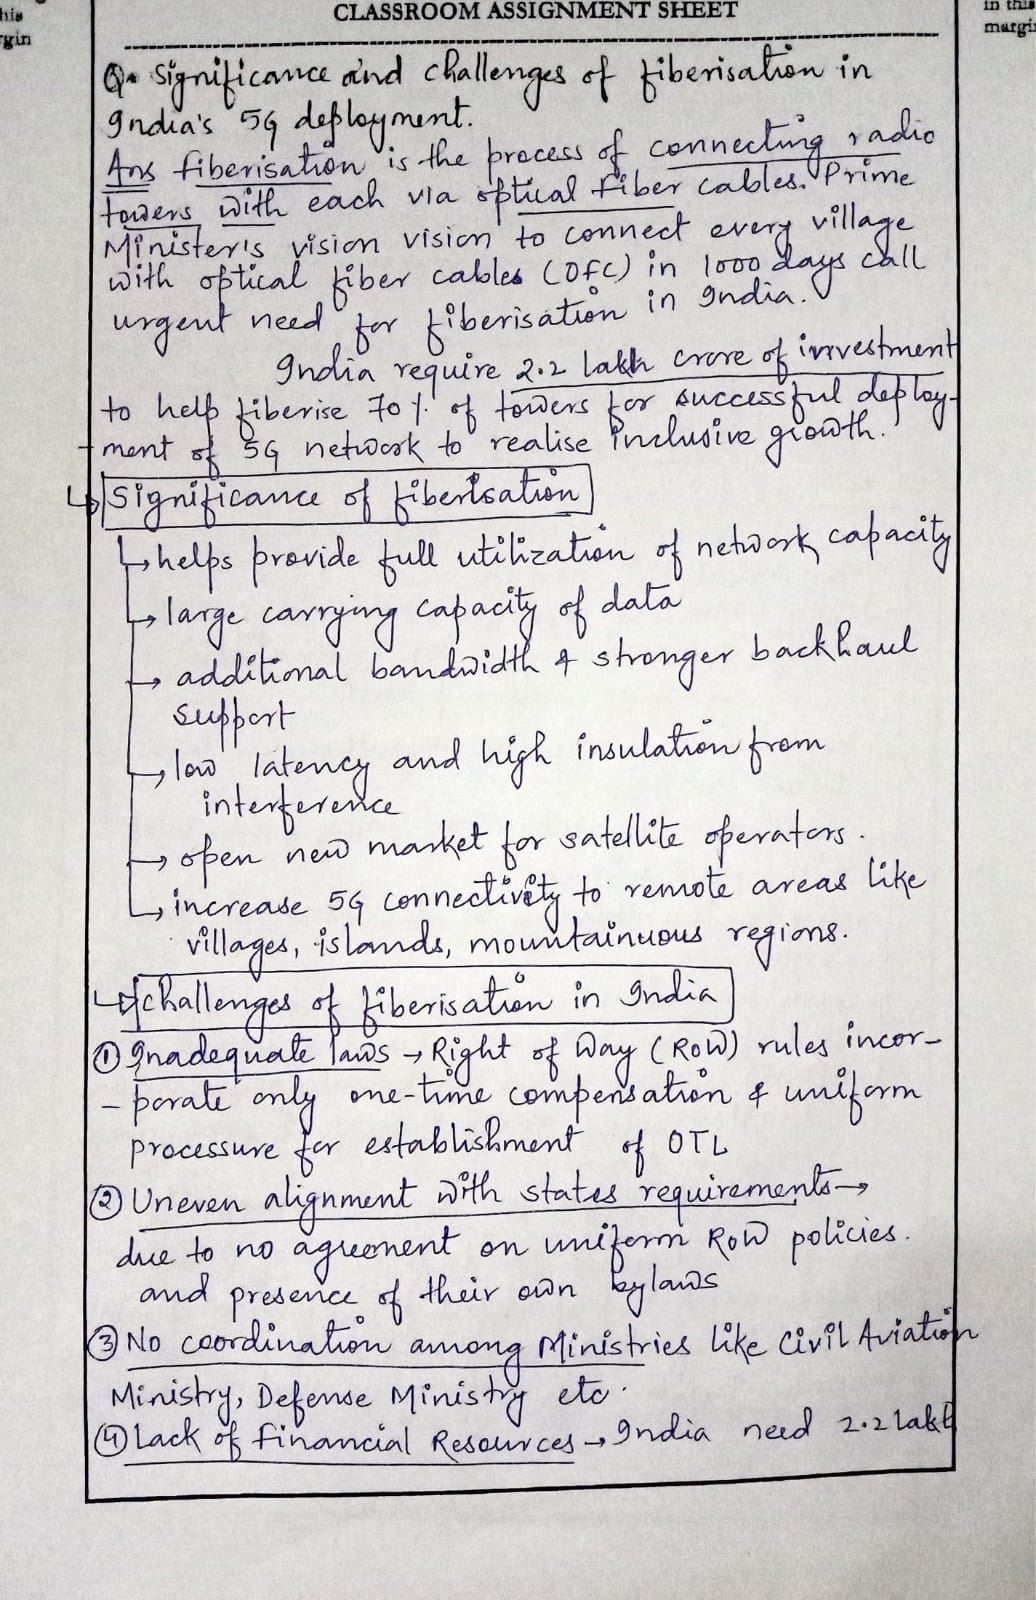 his
rgin
CLASSROOM ASSIGNMENT SHEET
in this
margin
Q. Significance and challenges of fiberisation in
India's 5G deployment.
Ans fiberisation is the process of connecting radio
towers with each via optical fiber cables. Prime
Minister's vision vision to connect every village
with optical fiber cables (OFC) in 1000 days call
urgent need for fiberisation in India.
India require 2.2 lakh crore of investment
to help fiberise 70% of towers for successful deploy-
-ment of 5G network to realise inclusive growth.
↳ Significance of fiberisation
↳ helps provide full utilization of network capacity
↳ large carrying capacity of data
→ additional bandwidth & stronger backhaul
support
↳ low latency and high insulation from
interference
↳ open new market for satellite operators.
↳ increase 5G connectivity to remote areas like
villages, islands, mountainuous regions.
↳ challenges of fiberisation in India
① Inadequate laws → Right of Way (ROW) rules incor-
- porate only one-time compensation & uniform
processure for establishment of OTL
② Uneven alignment with states requirements →
due to no agreement on uniform ROW policies.
and presence of their own bylaws
③ No coordination among Ministries like Civil Aviation
Ministry, Defense Ministry etc.
④ Lack of financial Resources → India need 2.2 lakh